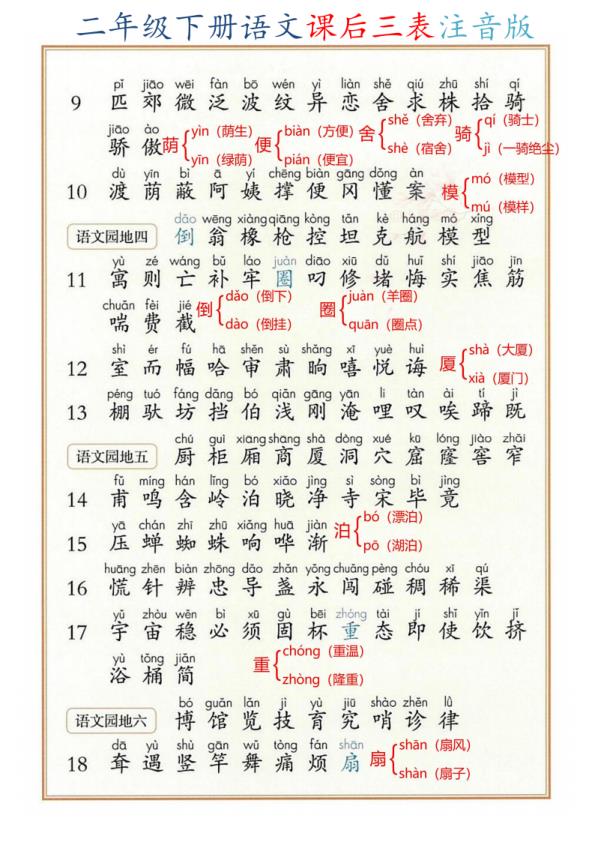 二年级下册语文课后三表注音版
pǐ jiāo wēi fàn bō wén yì liàn shě qiú zhū shí qí
9 匹 郊 微 泛 波 纹 异 恋 舍 求 株 拾 骑
jiāo ào
骄 傲 荫 yìn（荫生） yīn（绿荫） 便 biàn（方便） pián（便宜） 舍 shě（舍弃） shè（宿舍） 骑 qí（骑士） jì（一骑绝尘）
dù yīn bì ā yí chēng biàn gāng dǒng àn
10 渡 荫 蔽 阿 姨 撑 便 冈 懂 案 模 mó（模型） mú（模样）
dǎo wēng xiàng qiāng kòng tǎn kè háng mó xíng
语文园地四 倒 翁 橡 枪 控 坦 克 航 模 型
yù zé wáng bǔ láo juàn diāo xiū dǔ huǐ shí jiāo jīn
11 寓 则 亡 补 牢 圈 叼 修 堵 悔 实 焦 筋
chuǎn fèi jié
喘 费 截 倒 dǎo（倒下） dào（倒挂） 圈 juàn（羊圈） quān（圈点）
shì ér fú hā shěn sù shǎng xī yuè huì
12 室 而 幅 哈 审 肃 晌 嘻 悦 诲 厦 shà（大厦） xià（厦门）
péng tuó fáng dǎng bó qiǎn gāng yān li tàn ài tí jì
13 棚 驮 坊 挡 伯 浅 刚 淹 哩 叹 唉 蹄 既
chú guì xiāng shāng shà dòng xué kū lóng jiào zhǎi
语文园地五 厨 柜 厢 商 厦 洞 穴 窟 窿 窖 窄
fǔ míng hán lǐng bó xiǎo jìng sì sòng bì jìng
14 甫 鸣 含 岭 泊 晓 净 寺 宋 毕 竟
yā chán zhī zhū xiǎng huā jiàn
15 压 蝉 蜘 蛛 响 哗 渐 泊 bó（漂泊） pō（湖泊）
huāng zhēn biàn zhōng dǎo zhǎn yǒng chuǎng pèng chóu xī qú
16 慌 针 辨 忠 导 盏 永 闯 碰 稠 稀 渠
yǔ zhòu wěn bì xū gù bēi zhóng tài jí shǐ yǐn jǐ
17 宇 宙 稳 必 须 固 杯 重 态 即 使 饮 挤
yù tǒng jiǎn
浴 桶 简 重 chóng（重温） zhòng（隆重）
bó guǎn lǎn jì yù jiū shào zhěn lǜ
语文园地六 博 馆 览 技 育 究 哨 诊 律
dā yù shù gān wǔ tòng fán shān
18 耷 遇 竖 竿 舞 痛 烦 扇 扇 shān（扇风） shàn（扇子）